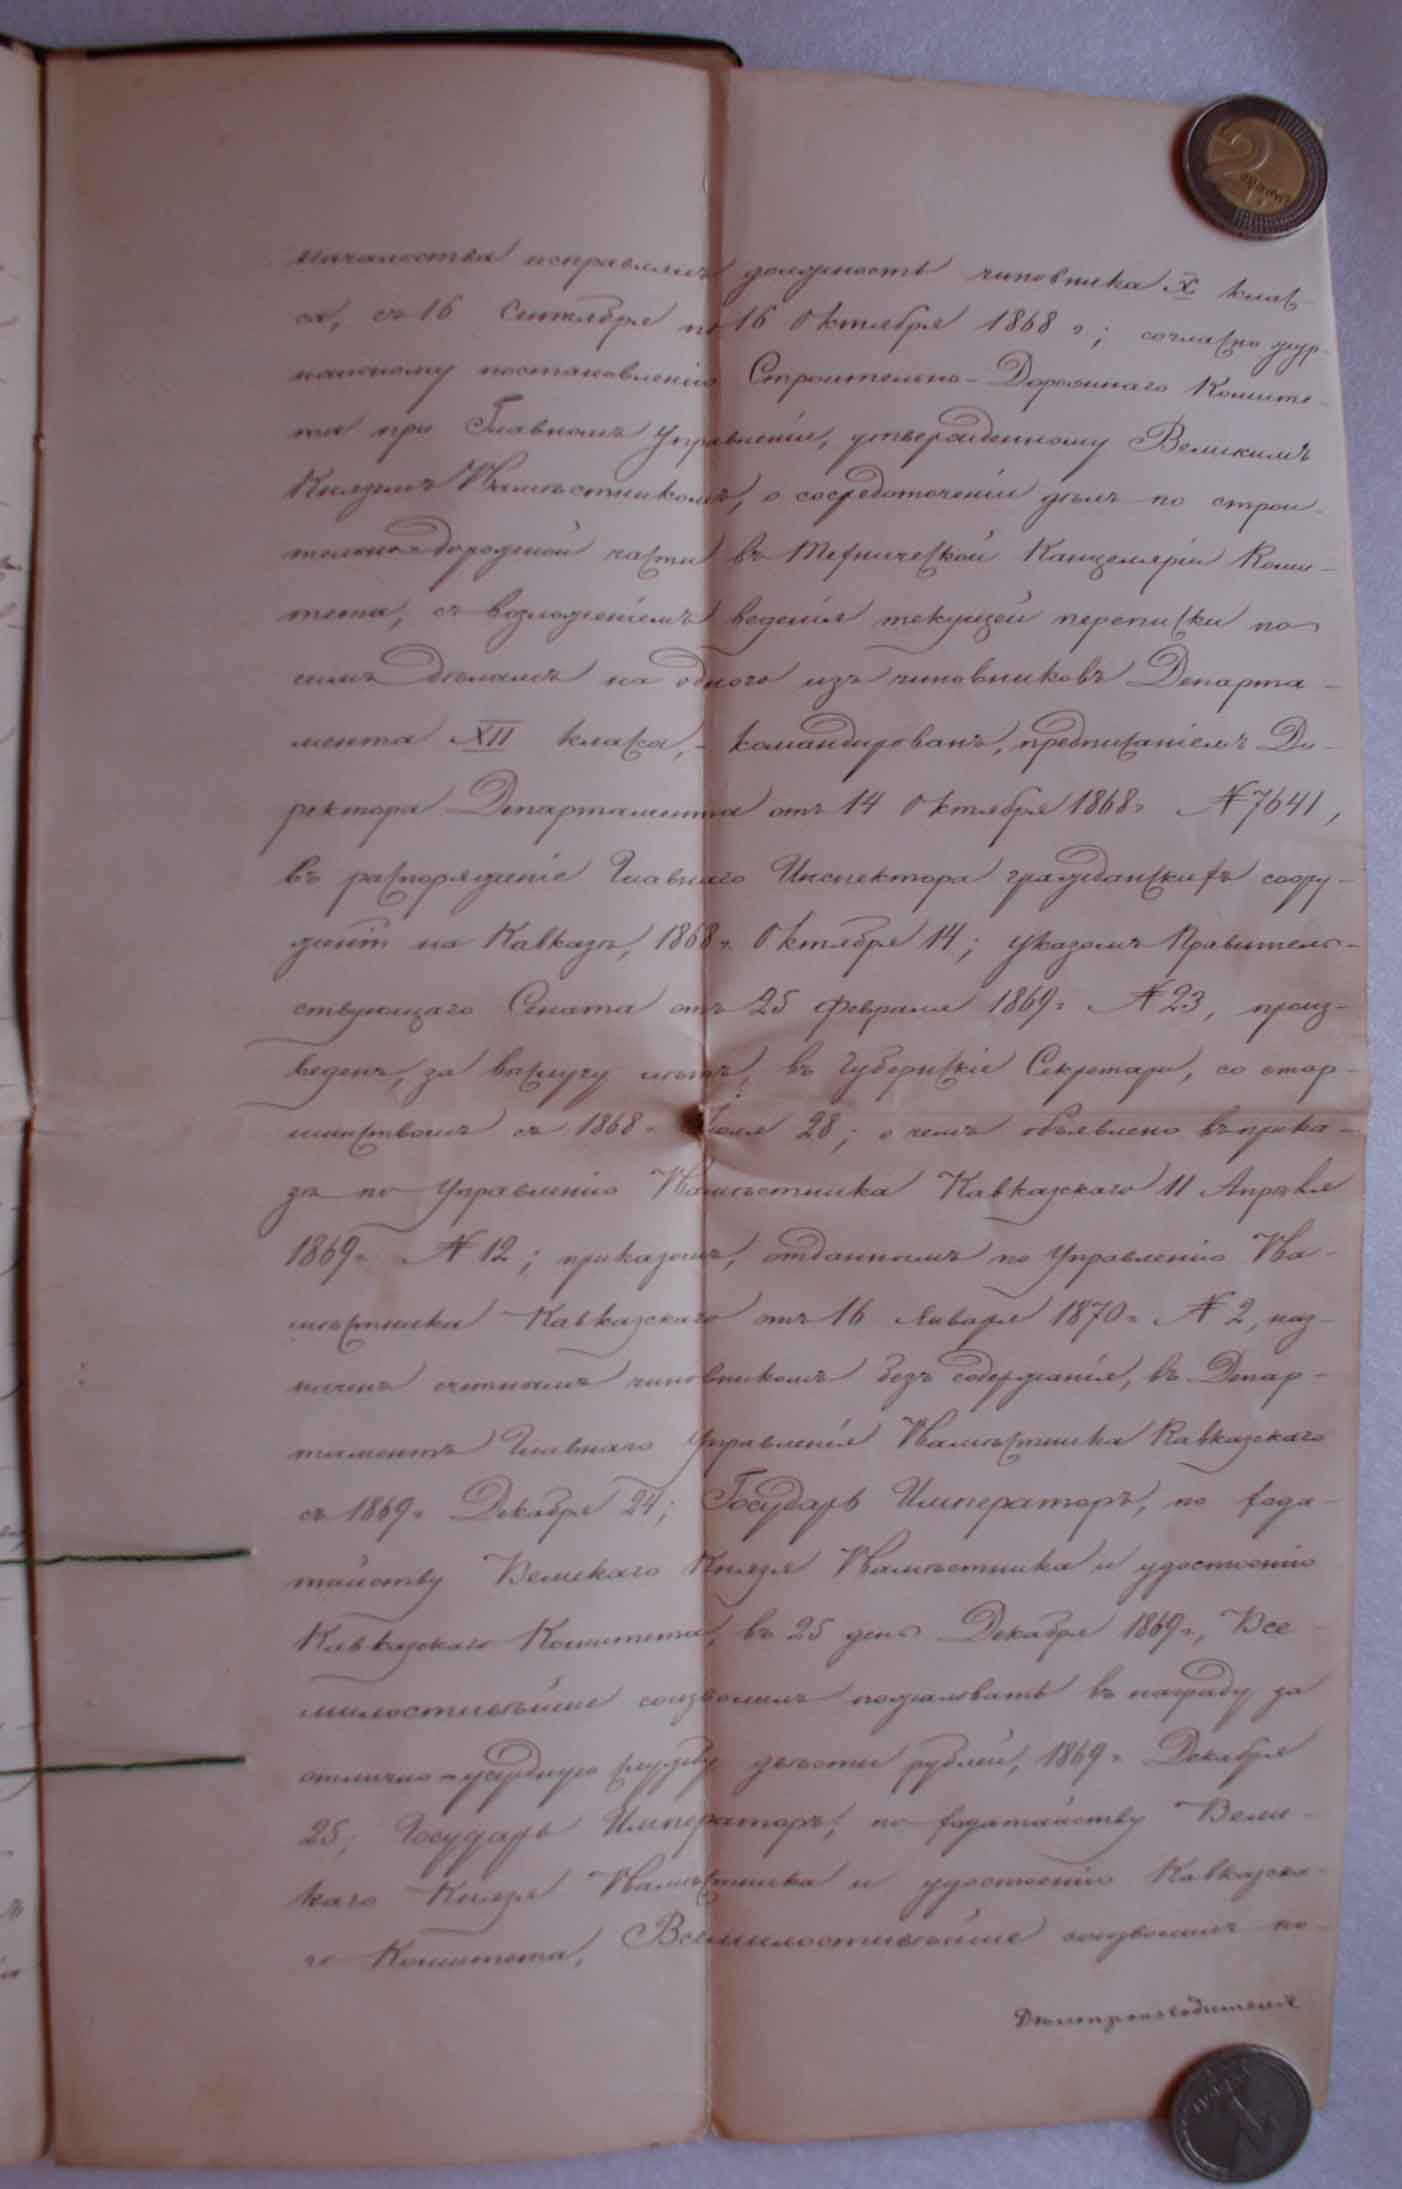 начальства исправлялъ должность чиновника X клас-
са, съ 16 Сентября по 16 Октября 1868 г.; согласно жур-
нальному постановленію Строительно-Дорожнаго Комите-
та при Главномъ Управленіи, утвержденному Великимъ
Княземъ Намѣстникомъ, о сосредоточеніи дѣлъ по строи-
тельно-дорожной части въ Технической Канцеляріи Коми-
тета, съ возложеніемъ веденія текущей переписки по
симъ дѣламъ на одного изъ чиновниковъ Департа-
мента XII класса, - командированъ, предписаніемъ Ди-
ректора Департамента отъ 14 Октября 1868 г. № 7641,
въ распоряженіе Главнаго Инспектора гражданскихъ соору-
женій на Кавказѣ, 1868 г. Октября 14; указомъ Правитель-
ствующаго Сената отъ 25 Февраля 1869 г. № 23, произ-
веденъ, за выслугу лѣтъ, въ Губернскіе Секретари, со стар-
шинствомъ съ 1868 г. Іюля 28; о чемъ объявлено въ прика-
зѣ по Управленію Намѣстника Кавказскаго 11 Апрѣля
1869 г. № 12; приказомъ, отданнымъ по Управленію На-
мѣстника Кавказскаго отъ 16 Января 1870 г. № 2, наз-
наченъ счетнымъ чиновникомъ безъ содержанія, въ Депар-
таментъ Главнаго Управленія Намѣстника Кавказскаго
съ 1869 г. Декабря 24; Государь Императоръ, по хода-
тайству Великаго Князя Намѣстника и удостоенію
Кавказскаго Комитета, въ 25 день Декабря 1869 г., Все-
милостивѣйше соизволилъ пожаловать въ награду за
отлично-усердную службу двѣсти рублей, 1869 г. Декабря
25; Государь Императоръ, по ходатайству Вели-
каго Князя Намѣстника и удостоенію Кавказска-
го Комитета, Всемилостивѣйше соизволилъ по-
Дѣлопроизводитель